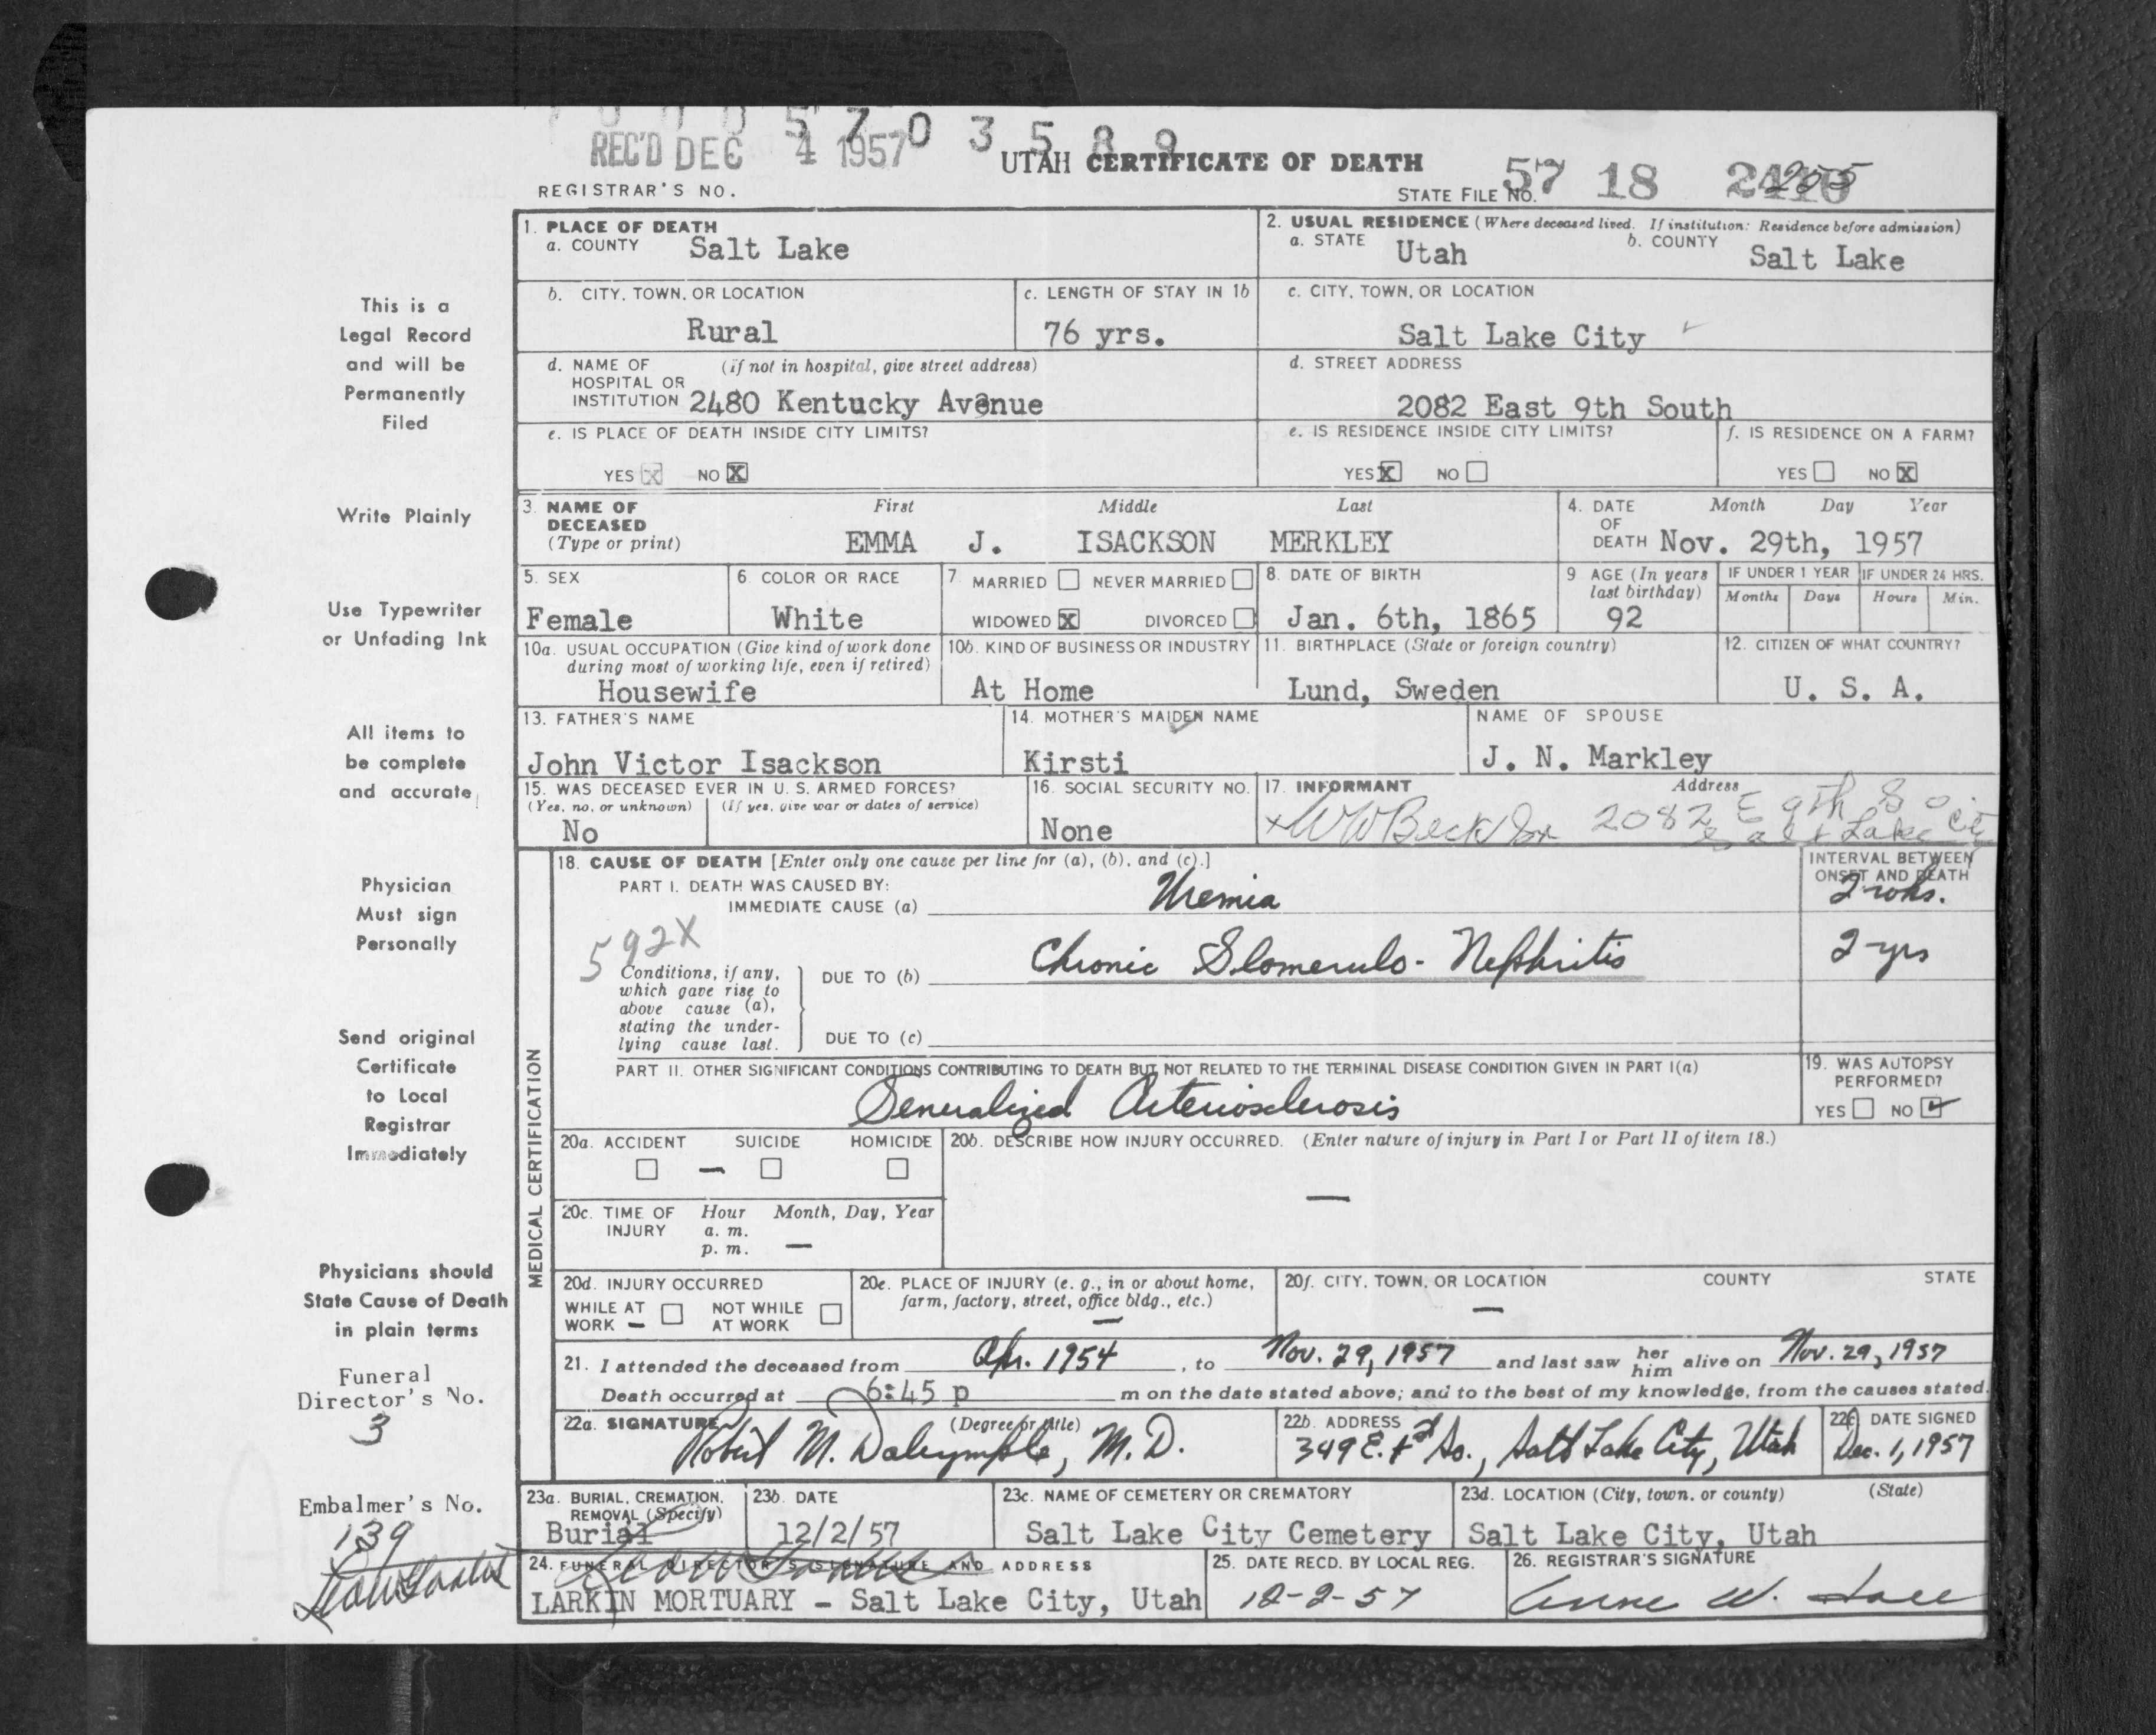 5 7 0 3 5 8 9
REC'D DEC 4 1957
UTAH CERTIFICATE OF DEATH
REGISTRAR'S NO.
STATE FILE NO. 57 18
1. PLACE OF DEATH
a. COUNTY Salt Lake
2. USUAL RESIDENCE (Where deceased lived. If institution: Residence before admission)
a. STATE Utah b. COUNTY Salt Lake
b. CITY, TOWN, OR LOCATION Rural
c. LENGTH OF STAY IN 1b 76 yrs.
c. CITY, TOWN, OR LOCATION Salt Lake City
d. NAME OF HOSPITAL OR INSTITUTION (if not in hospital, give street address) 2480 Kentucky Avenue
d. STREET ADDRESS 2082 East 9th South
e. IS PLACE OF DEATH INSIDE CITY LIMITS?
YES X NO X
e. IS RESIDENCE INSIDE CITY LIMITS?
YES X NO
f. IS RESIDENCE ON A FARM?
YES NO X
3. NAME OF DECEASED (Type or print)
First Middle Last
EMMA J. ISACKSON MERKLEY
4. DATE OF DEATH Month Day Year
Nov. 29th, 1957
5. SEX Female
6. COLOR OR RACE White
7. MARRIED NEVER MARRIED
WIDOWED X DIVORCED
8. DATE OF BIRTH Jan. 6th, 1865
9 AGE (In years last birthday) 92
IF UNDER 1 YEAR Months Days
IF UNDER 24 HRS. Hours Min.
10a. USUAL OCCUPATION (Give kind of work done during most of working life, even if retired)
Housewife
10b. KIND OF BUSINESS OR INDUSTRY At Home
11. BIRTHPLACE (State or foreign country) Lund, Sweden
12. CITIZEN OF WHAT COUNTRY? U. S. A.
13. FATHER'S NAME John Victor Isackson
14. MOTHER'S MAIDEN NAME Kirsti
NAME OF SPOUSE J. N. Markley
15. WAS DECEASED EVER IN U. S. ARMED FORCES?
(Yes, no, or unknown) (If yes, give war or dates of service)
No
16. SOCIAL SECURITY NO. None
17. INFORMANT Address
x W W Beck 2082 E 9th So
Salt Lake City
18. CAUSE OF DEATH [Enter only one cause per line for (a), (b), and (c).]
INTERVAL BETWEEN ONSET AND DEATH
PART I. DEATH WAS CAUSED BY:
IMMEDIATE CAUSE (a) Uremia 2 wks.
592X
Conditions, if any, which gave rise to above cause (a), stating the underlying cause last.
DUE TO (b) Chronic Glomerulo-Nephritis 2 yrs
DUE TO (c)
PART II. OTHER SIGNIFICANT CONDITIONS CONTRIBUTING TO DEATH BUT NOT RELATED TO THE TERMINAL DISEASE CONDITION GIVEN IN PART I(a)
Generalized Arteriosclerosis
19. WAS AUTOPSY PERFORMED?
YES NO ✓
MEDICAL CERTIFICATION
20a. ACCIDENT SUICIDE HOMICIDE
—
20b. DESCRIBE HOW INJURY OCCURRED. (Enter nature of injury in Part I or Part II of item 18.)
—
20c. TIME OF INJURY Hour Month, Day, Year
a. m.
p. m. —
20d. INJURY OCCURRED
WHILE AT WORK — NOT WHILE AT WORK
20e. PLACE OF INJURY (e. g., in or about home, farm, factory, street, office bldg., etc.)
—
20f. CITY, TOWN, OR LOCATION COUNTY STATE
—
21. I attended the deceased from Apr. 1954, to Nov. 29, 1957 and last saw her him alive on Nov. 29, 1957
Death occurred at 6:45 p m on the date stated above; and to the best of my knowledge, from the causes stated.
22a. SIGNATURE (Degree or title)
Robert M. Dalrymple, M.D.
22b. ADDRESS
349 E. So., Salt Lake City, Utah
22c. DATE SIGNED
Dec. 1, 1957
23a. BURIAL, CREMATION, REMOVAL (Specify) Burial
23b. DATE 12/2/57
23c. NAME OF CEMETERY OR CREMATORY Salt Lake City Cemetery
23d. LOCATION (City, town, or county) (State) Salt Lake City, Utah
24. FUNERAL DIRECTOR'S SIGNATURE AND ADDRESS
LARKIN MORTUARY - Salt Lake City, Utah
25. DATE RECD. BY LOCAL REG.
12-2-57
26. REGISTRAR'S SIGNATURE
Anne W.
This is a
Legal Record
and will be
Permanently
Filed
Write Plainly
Use Typewriter
or Unfading Ink
All items to
be complete
and accurate
Physician
Must sign
Personally
Send original
Certificate
to Local
Registrar
Immediately
Physicians should
State Cause of Death
in plain terms
Funeral
Director's No.
3
Embalmer's No.
139